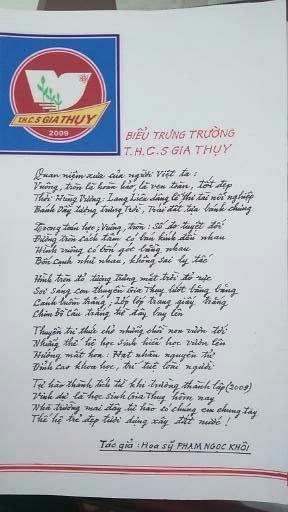 T.H.C.S GIA THỤY
2009
BIỂU TRƯNG TRƯỜNG
T.H.C.S GIA THỤY
Quan niệm xưa của người Việt ta:
Vuông, tròn là hoàn hảo, là vẹn toàn, tốt đẹp
Thời Hùng Vương: Lang Liêu dâng lễ thi tài nối nghiệp
Bánh Dày tượng trưng Trời, Trái đất tựa bánh chưng
Trong toán học: Vuông, tròn: Số đo tuyệt đối
Đường tròn cách tâm có bán kính đều nhau
Hình vuông có bốn góc bằng nhau
Bốn cạnh như nhau, không sai ly tấc
Hình tròn đỏ tượng trưng mặt trời đỏ rực
Soi sáng con thuyền Gia Thụy lướt băng băng
Cánh buồm trắng: Lớp lớp trang giấy trắng
Chim Bồ Câu trắng vút bay lên
Thuyền tri thức chở những chồi non vươn tới
Những thế hệ học sinh hiếu học vươn lên
Hướng mặt hoa: Hạt nhân nguyên tử
Đỉnh cao khoa học, trí tuệ loài người
Tự hào thành tích từ khi trường thành lập (2009)
Vinh dự là học sinh Gia Thụy hôm nay
Nhà trường mai đây tự hào có chúng em chung tay
Thế hệ trẻ đẹp tươi dựng xây đất nước!
Tác giả: Hoạ sỹ PHẠM NGỌC KHÔI